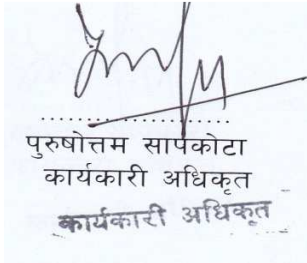 ....................
पुरुषोत्तम सापकोटा
कार्यकारी अधिकृत
कार्यकारी अधिकृत